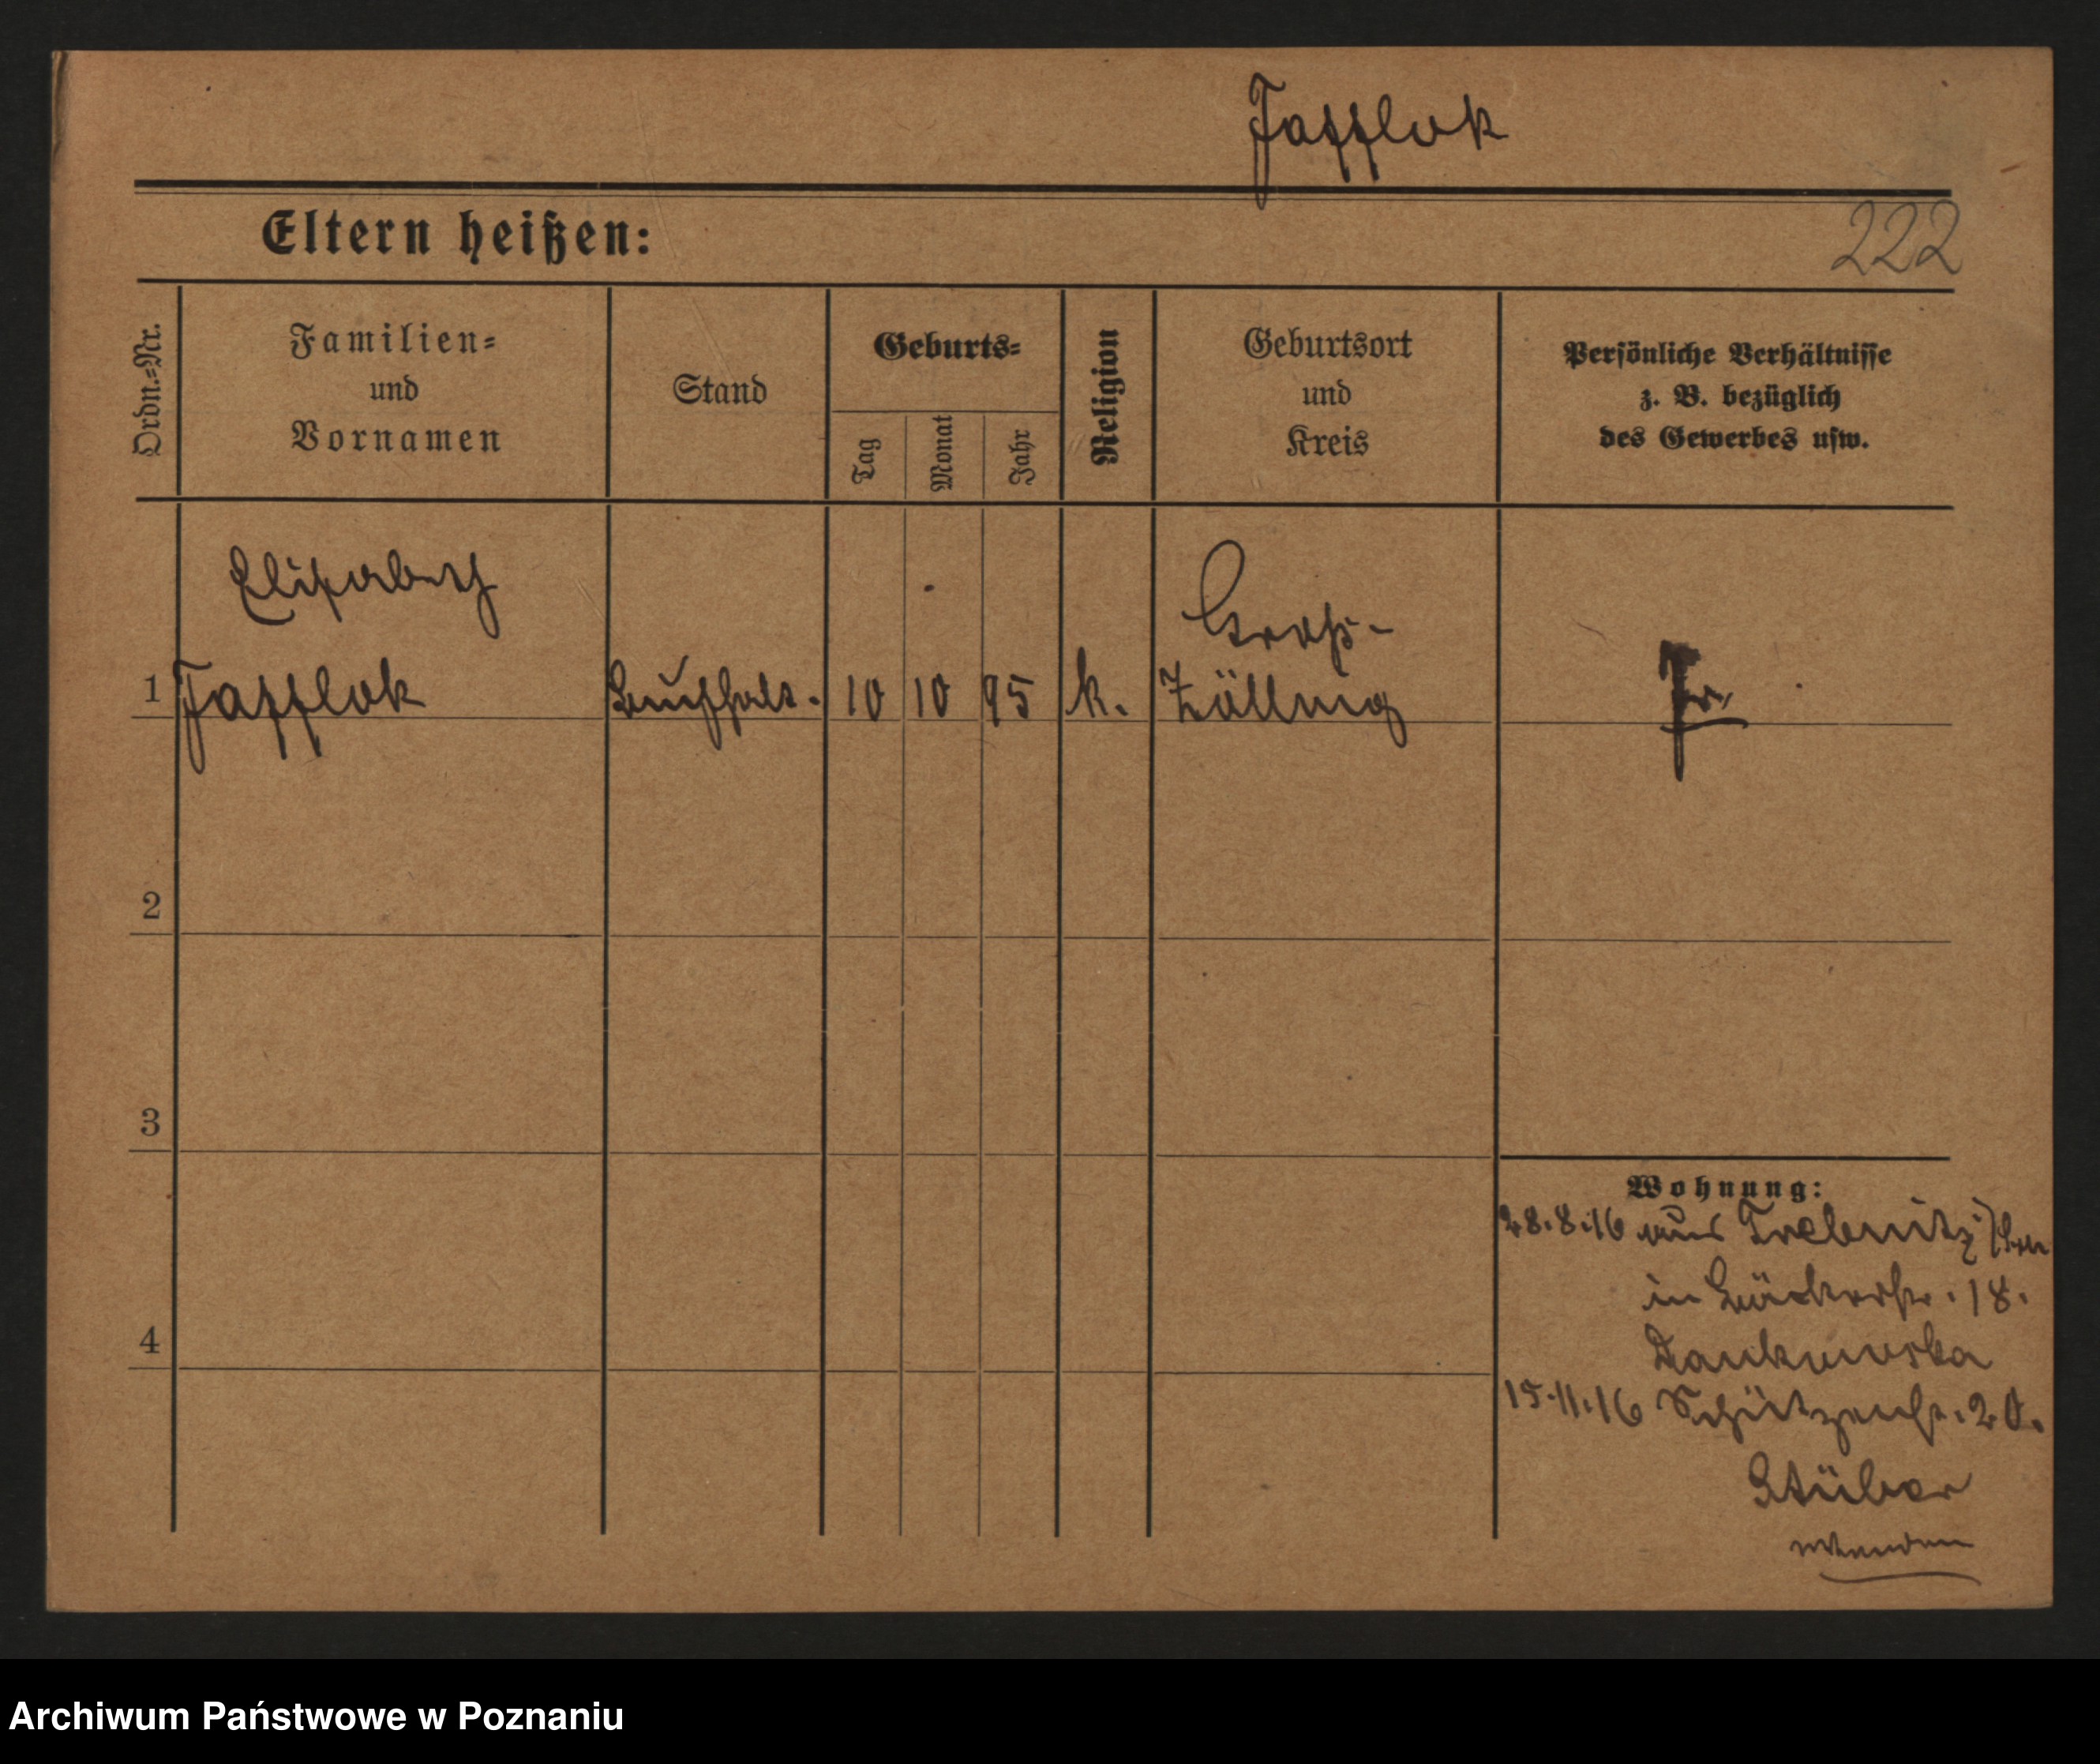 Jafflok
Eltern heißen:
222
Ordn.=Nr.
Familien=
und
Vornamen
Stand
Geburts=
Tag
Monat
Jahr
Religion
Geburtsort
und
Kreis
Persönliche Verhältnisse
z. B. bezüglich
des Gewerbes usw.
Elisabeth
Groß-
1 Jafflok Buchhalt. 10 10 95 k. Zöllnig
2
3
4
Wohnung:
28.8.16 aus Trebnitz
in Bäckerstr. 18.
15.11.16 Schützenstr. 20.
Stüber
wenden
Archiwum Państwowe w Poznaniu